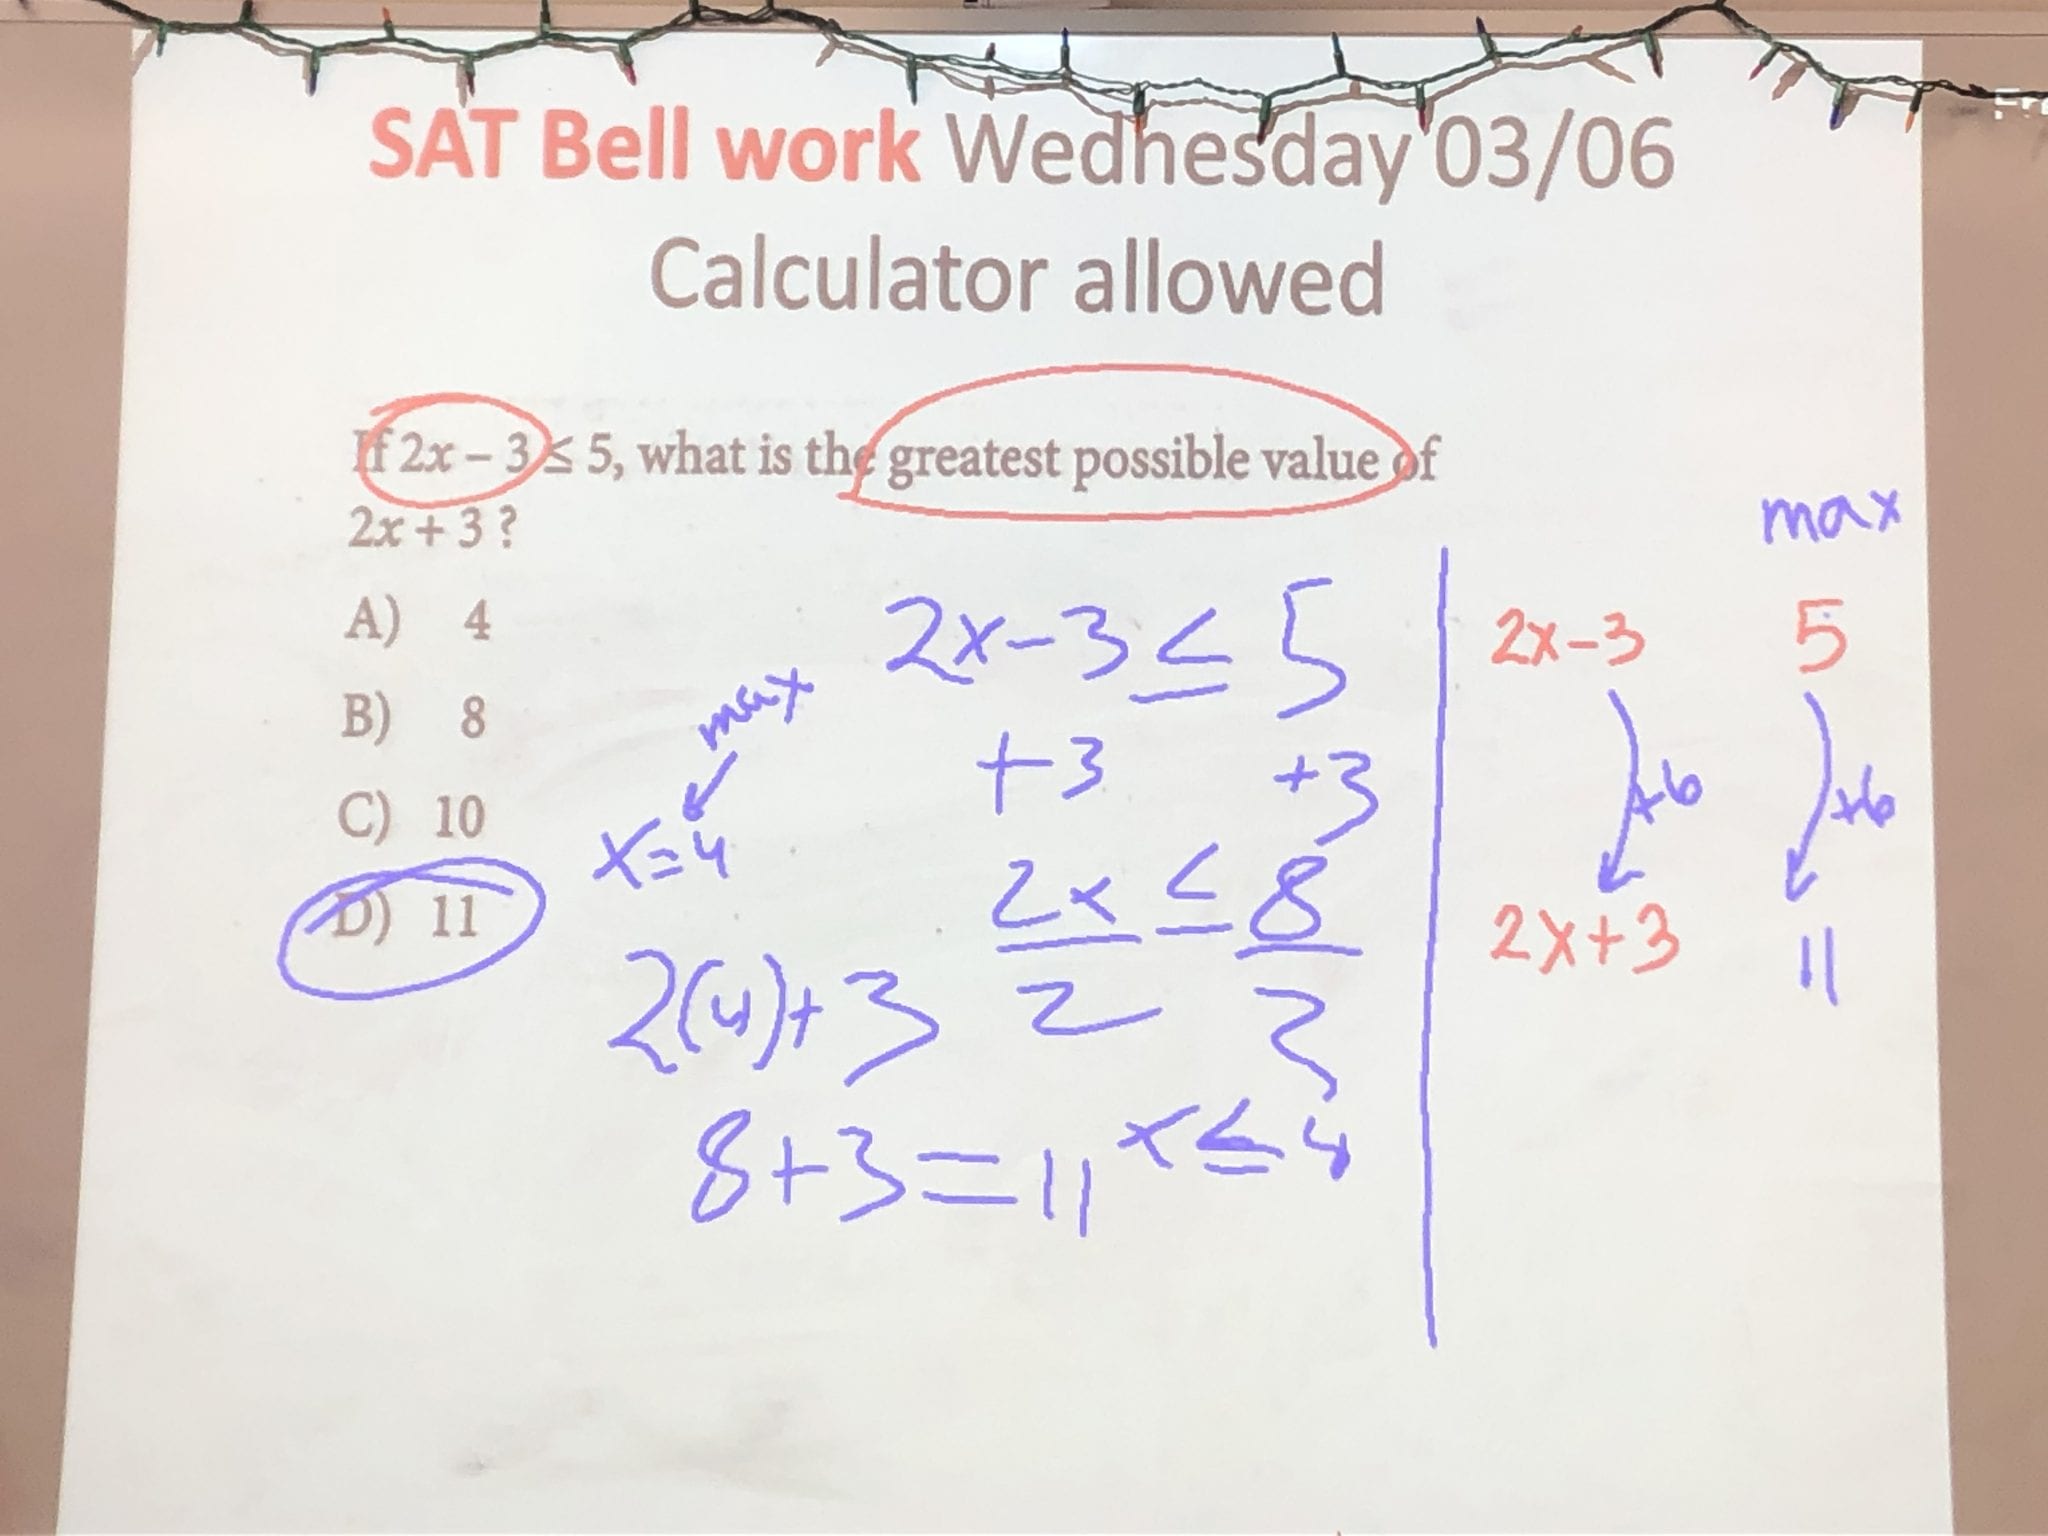 SAT Bell work Wednesday 03/06
Calculator allowed
If 2x – 3 ≤ 5, what is the greatest possible value of
2x + 3 ?
A) 4
B) 8
C) 10
D) 11
2x-3 ≤ 5
+3 +3
2x ≤ 8
2 2
x ≤ 4
max
x=4
2(4)+3
8+3=11
max
2x-3 5
+6 +6
2x+3 11